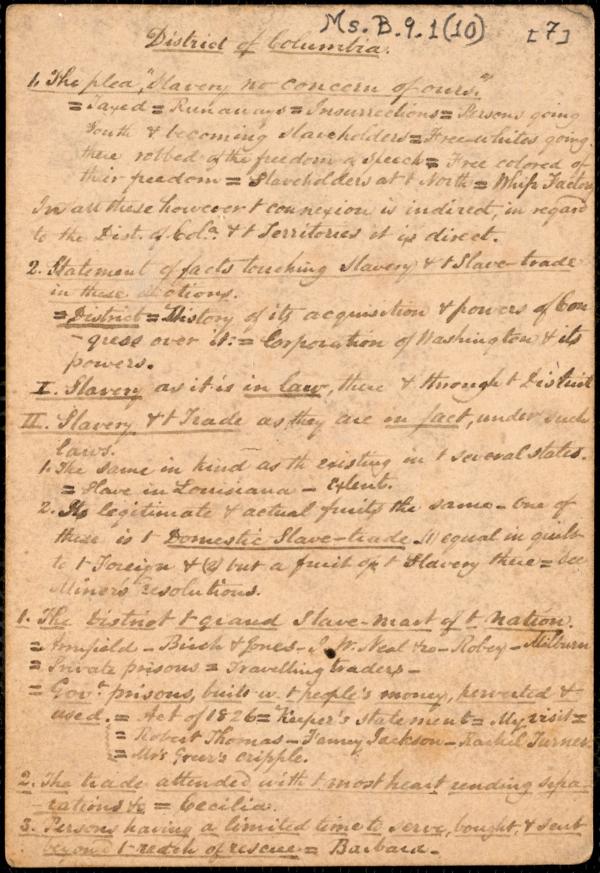 Ms. B. 9. 1 (10) [7]
District of Columbia.
1. The plea, "Slavery no concern of ours."
= Taxed = Runaways = Insurrections = Persons going
South & becoming slaveholders = Free whites going
there robbed of the freedom of speech = Free colored of
their freedom = Slaveholders at t North = Whip Factory
In all these however t connexion is indirect, in regard
to the Dist. of Cola. & t Territories it is direct.
2. Statement of facts touching Slavery & t Slave-trade
in these sections.
= District = History of its acquisition & powers of Con
-gress over it: = Corporation of Washington & its
powers.
I. Slavery as it is in law, there & through t District
II. Slavery & t Trade as they are in fact, under such
laws.
1. The same in kind as th existing in t several states.
= Slave in Louisiana - Extent.
2. Its legitimate & actual fruits the same - One of
these is t Domestic Slave-trade (1) equal in guilt
to t Foreign & (2) but a fruit of t Slavery there = See
Miner's resolutions.
1. The District t grand Slave-mart of t Nation.
= Armfield - Birch & Jones - J. W. Neal & Co - Robey - Milburn
= Private prisons = Travelling traders -
= Govt. prisons, built w. t people's money, perverted &
used. = Act of 1826 = Keeper's statement = My visit =
= Robert Thomas - Fanney Jackson - Rachel Turner
= Mrs Greer's cripple.
2. The trade attended with t most heart rending sepa-
rations &c = Cecilia.
3. Persons having a limited time to serve, bought, & sent
beyond t reach of rescue = Barbara -